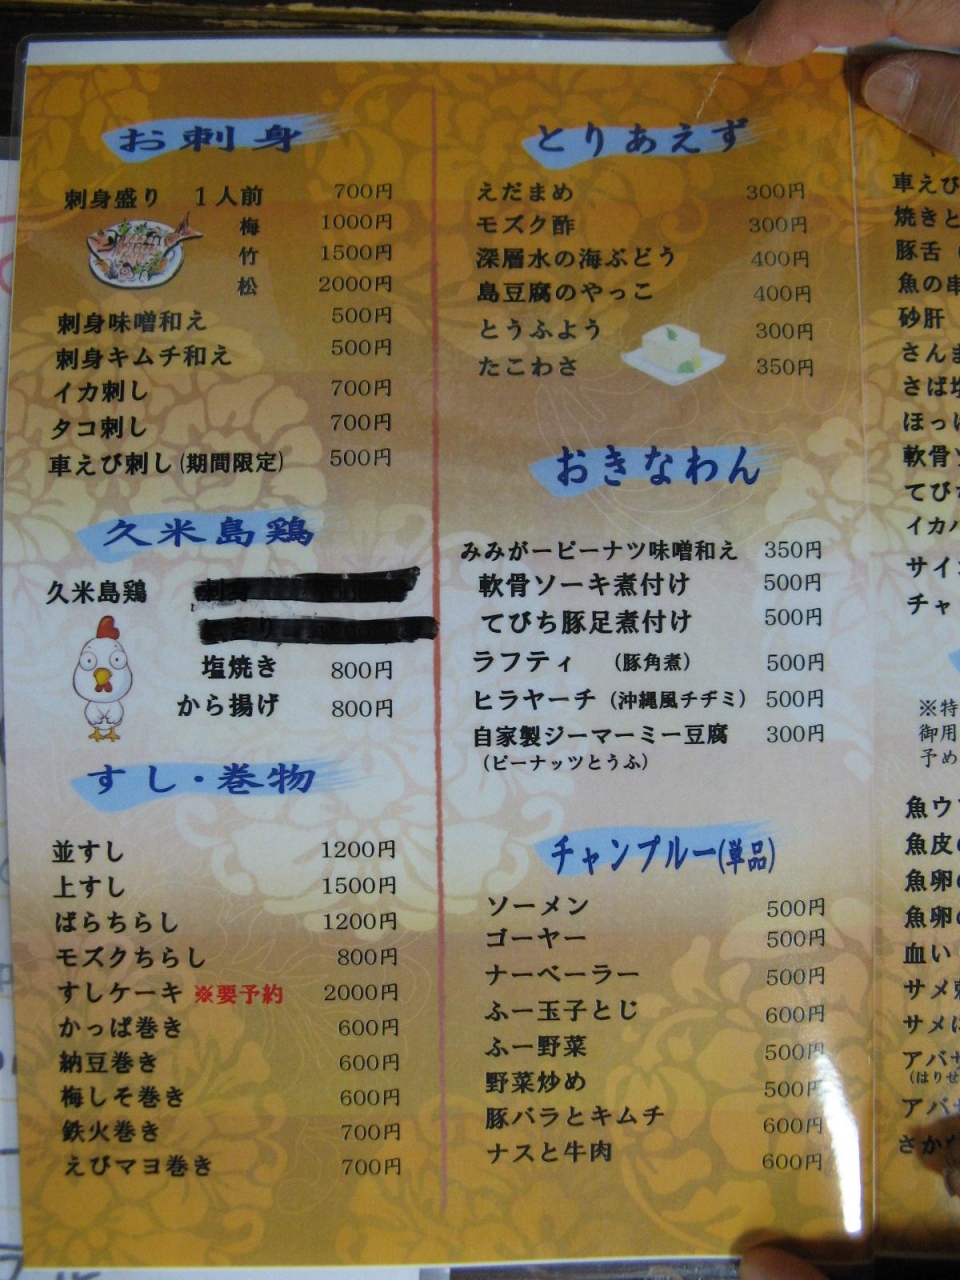 お刺身
刺身盛り 1人前 700円
梅 1000円
竹 1500円
松 2000円
刺身味噌和え 500円
刺身キムチ和え 500円
イカ刺し 700円
タコ刺し 700円
車えび刺し(期間限定) 500円
久米島鶏
久米島鶏
塩焼き 800円
から揚げ 800円
すし・巻物
並すし 1200円
上すし 1500円
ばらちらし 1200円
モズクちらし 800円
すしケーキ ※要予約 2000円
かっぱ巻き 600円
納豆巻き 600円
梅しそ巻き 600円
鉄火巻き 700円
えびマヨ巻き 700円
とりあえず
えだまめ 300円
モズク酢 300円
深層水の海ぶどう 400円
島豆腐のやっこ 400円
とうふよう 300円
たこわさ 350円
おきなわん
みみがーピーナツ味噌和え 350円
軟骨ソーキ煮付け 500円
てびち豚足煮付け 500円
ラフティ (豚角煮) 500円
ヒラヤーチ (沖縄風チヂミ) 500円
自家製ジーマーミー豆腐 300円
(ピーナッツとうふ)
チャンプルー(単品)
ソーメン 500円
ゴーヤー 500円
ナーベーラー 500円
ふー玉子とじ 600円
ふー野菜 500円
野菜炒め 500円
豚バラとキムチ 600円
ナスと牛肉 600円
車えび
焼きと
豚舌
魚の串
砂肝
さんま
さば塩
ほっけ
軟骨ソ
てびち
イカバ
サイコ
チャ
※特
御用
予め
魚ウ
魚皮の
魚卵の
魚卵の
血い
サメ
サメに
アバサ
(はりせ
アバサ
さかな